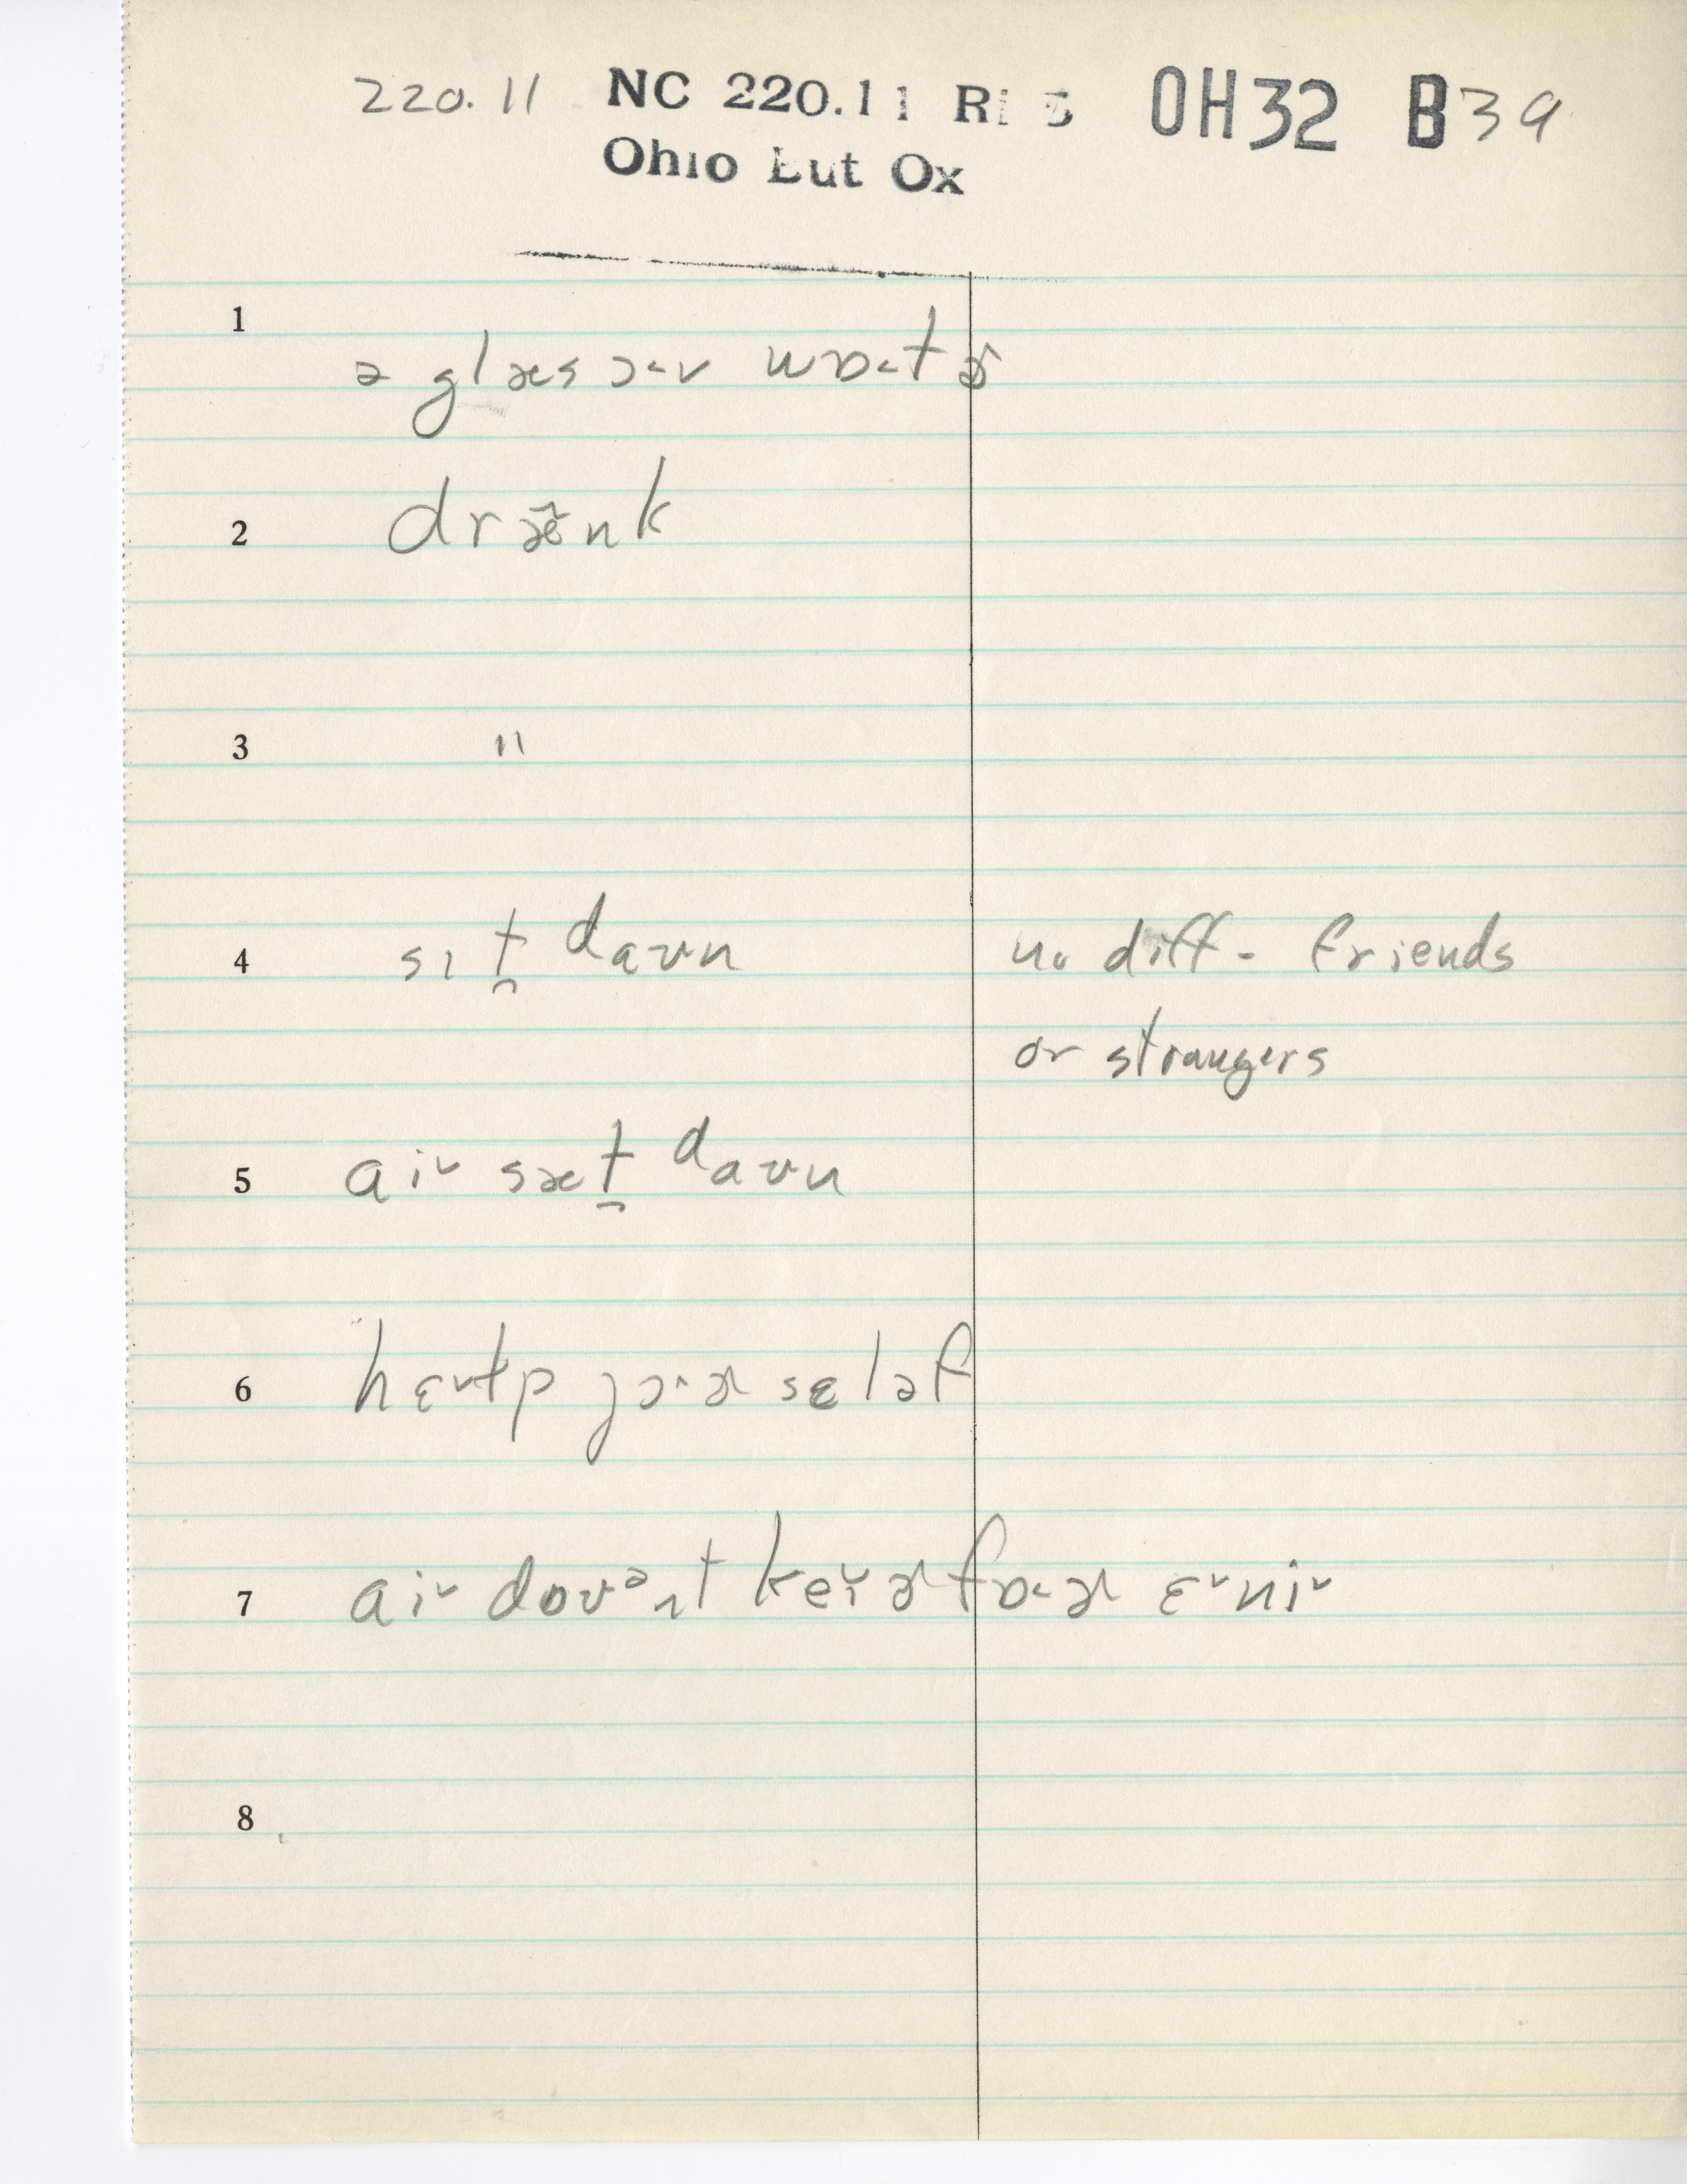 220.11 NC 220.11 OH32 B39
Ohio But Ox
1
ə glæs ɔ˂v wɒ˂tɚ
2 dræ̃nk
3 "
4 sɪt̯ daʊn no diff - friends
or strangers
5 ai˅ sæt̯ daʊn
6 hɛ˅ɫp jɔ˄ɚ sɛləf
7 ai˅ doʊᵊn̩t keɪ˅ɚ fɒ˂ɚ ɛ˅ni˅
8